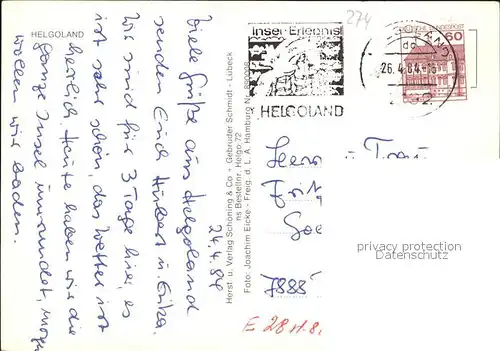 HELGOLAND
274
Insel-Erlebnis
HELGOLAND
26.4.84-15
60
Viele Grüße aus Helgoland
24.4.84
senden Euch Hubert u. Erika.
Wir sind für 3 Tage hier, es
ist sehr schön, das Wetter ist
herrlich. Heute haben wir die
ganze Insel umrundet, morgen
wollen wir baden.
Herst. u. Verlag Schöning & Co + Gebrüder Schmidt - Lübeck
ns Bestellnr. Helgo 72
Foto: Joachim Eicke - Freig. d. L. A. Hamburg Nr.
u.
7888
E 28.11.8
privacy protection
Datenschutz